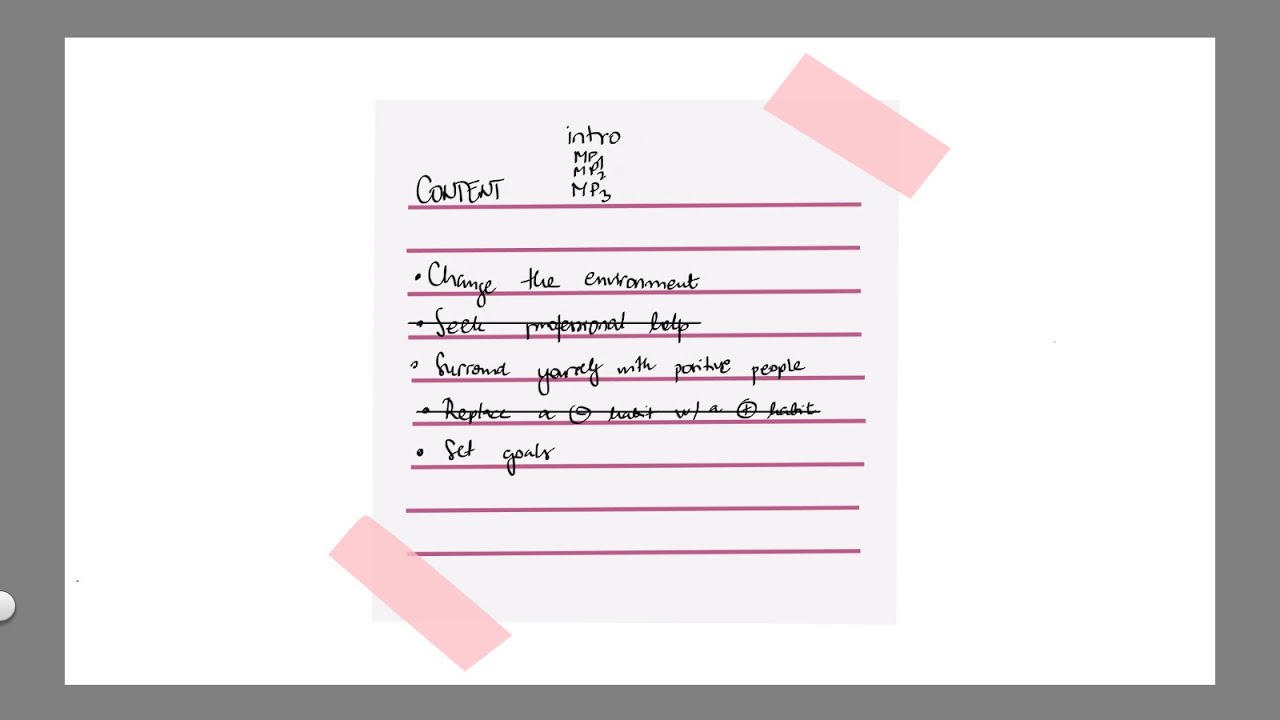 intro
MP1
MP2
CONTENT MP3
• Change the environment
• Seek professional help
• Surround yourself with positive people
• Replace a ⊖ habit w/ a ⊕ habit
• Set goals